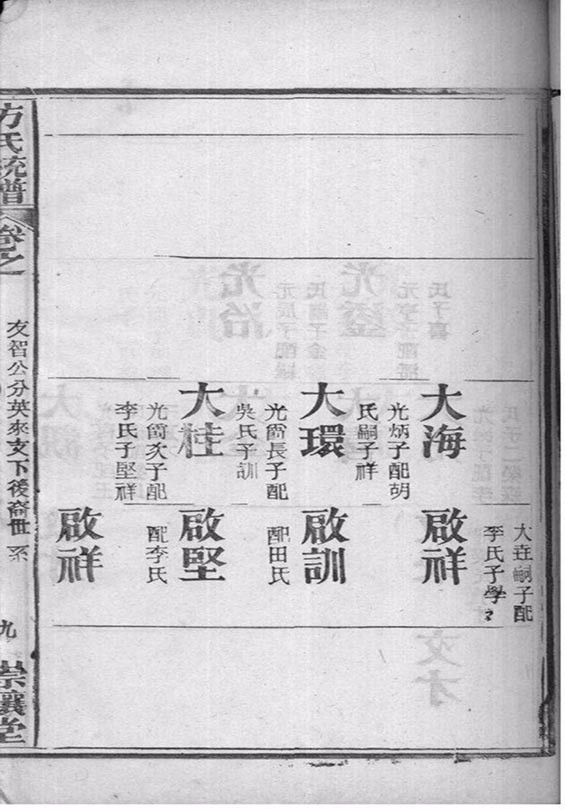 大垚嗣子配
李氏子學
大海
光炳子配胡
氏嗣子祥
啟祥
大環
光筒長子配
吳氏子訓
啟訓
配田氏
大桂
光筒次子配
李氏子堅祥
啟堅
配李氏
啟祥
方氏統譜
卷之
友智公分英來支下後裔世系
九
崇讓堂